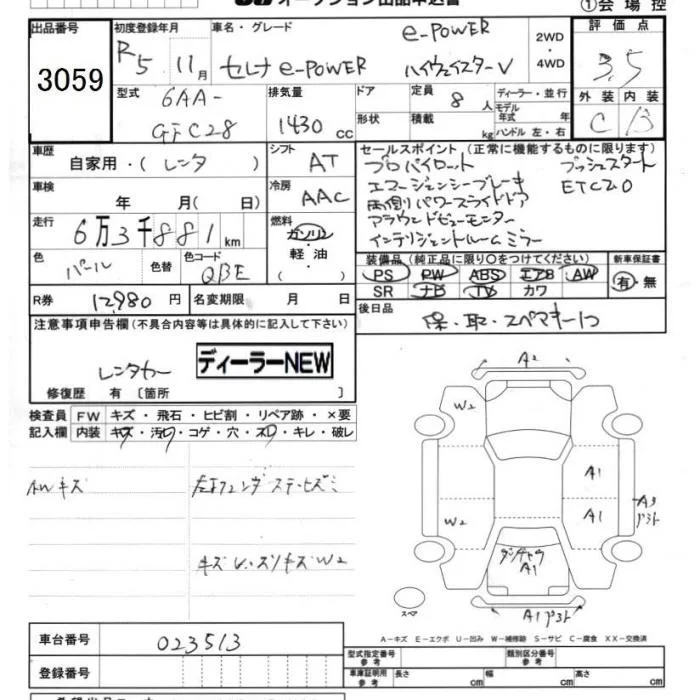 オークション出品申込書
①会場控
出品番号
3059
初度登録年月
R5 11月
車名・グレード
セレナ e-POWER
e-POWER
ハイウェイスターV
2WD
・
4WD
評価点
3.5
外装 内装
C B
型式
6AA-
GFC28
排気量
1430 cc
ドア
形状
定員 8 人
積載 kg
ディーラー・並行
モデル
年式 年
ハンドル 左・右
車歴
自家用・(レンタ)
シフト
AT
車検
年 月(日)
冷房
AAC
走行
6万3千881km
燃料
ガソリン
・
軽油
( )
色
パール
色替
色コード
QBE
セールスポイント (正常に機能するものに限ります)
プロパイロット プッシュスタート
エマージェンシーブレーキ ETC2.0
両側パワースライドドア
アラウンドビューモニター
インテリジェントルームミラー
装備品(純正品に限り〇をつけてください)
PS PW ABS エアB AW
SR ナビ TV カワ
新車保証書
有・無
R券 12,980円
名変期限 月 日
後日品
保・取・スペアキー1コ
注意事項申告欄(不具合内容等は具体的に記入して下さい)
レンタカー
ディーラーNEW
修復歴 有 〔箇所 〕
検査員
記入欄
FW キズ・飛石・ヒビ割・リペア跡・×要
内装 キズ・汚レ・コゲ・穴・スレ・キレ・破レ
AWキズ
キズW2
A2
W2
W2
A1
A1
A3
A1
A1
スペア
A-キズ E-エクボ U-凹み W-補修跡 S-サビ C-腐食 XX-交換済
車台番号
023513
登録番号
型式指定番号
参考
類別区分番号
参考
車庫証明用
参考
長さ cm
幅 cm
高さ cm